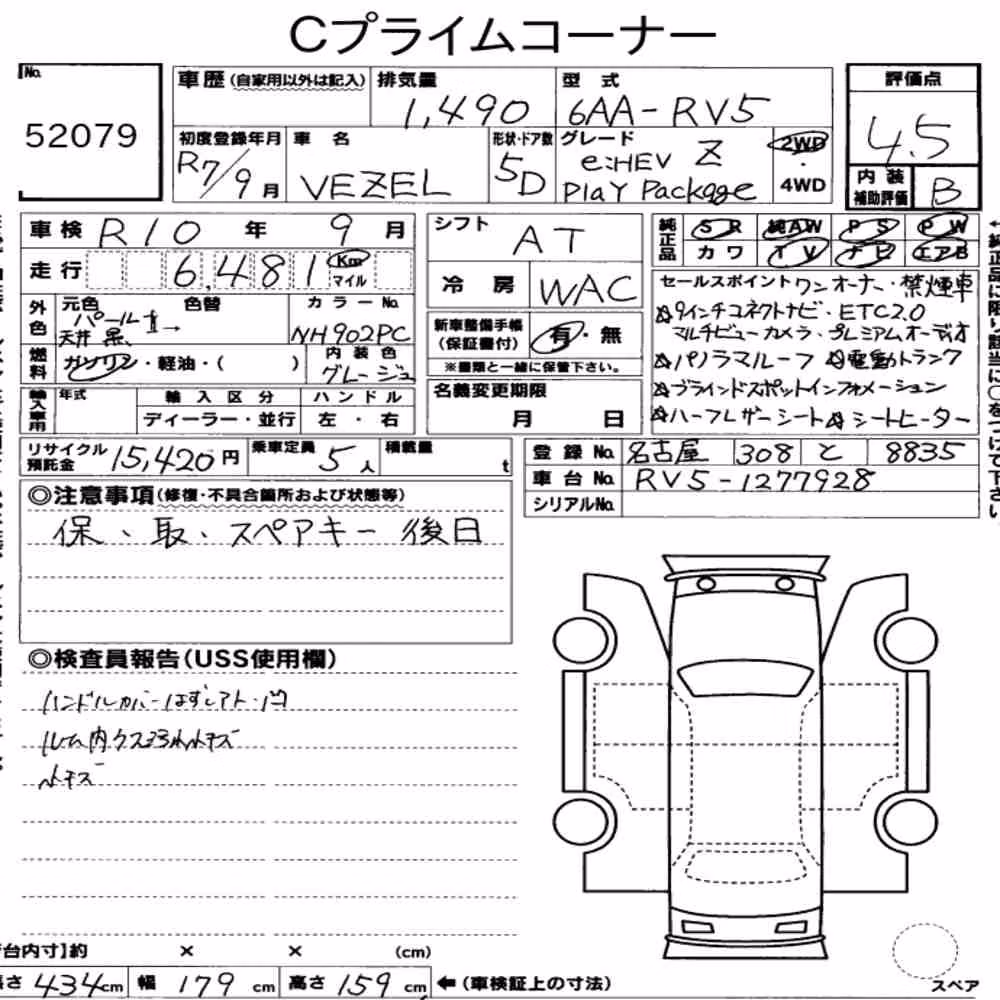 Cプライムコーナー
No. 52079
車歴(自家用以外は記入) 排気量 1,490 型式 6AA-RV5
評価点 4.5
初度登録年月 R7/9月 車名 VEZEL 形状・ドア数 5D グレード e:HEV Z PlaY Package 2WD・4WD
内装補助評価 B
車検 R10年9月
シフト AT
純正品 SR 純AW PS PW
カワ TV ナビ エアB
走行 6,481 Km マイル
冷房 WAC
外色 元色 パール 天井黒、 色替 → カラーNo. NH902PC
新車整備手帳(保証書付) 有・無
※書類と一緒に保管下さい。
セールスポイント ワンオーナー・禁煙車
☆9インチコネクトナビ・ETC2.0
マルチビューカメラ・プレミアムオーディオ
☆パノラマルーフ ☆電動トランク
☆ブラインドスポットインフォメーション
☆ハーフレザーシート☆シートヒーター
燃料 ガソリン・軽油・( ) 内装色 グレージュ
名義変更期限 月 日
輸入車用 年式 輸入区分 ディーラー・並行 ハンドル 左・右
リサイクル預託金 15,420円 乗車定員 5人 積載量 t
登録No. 名古屋 308 と 8835
車台No. RV5-1277928
シリアルNo.
◎注意事項(修復・不具合箇所および状態等)
保、取、スペアキー 後日
◎検査員報告(USS使用欄)
ハンドルカバーはずしアト・凹
ルーム内クスミ小キズ
小キズ
台内寸】約 × × (cm)
長さ 434cm 幅 179cm 高さ 159cm ←(車検証上の寸法)
スペア